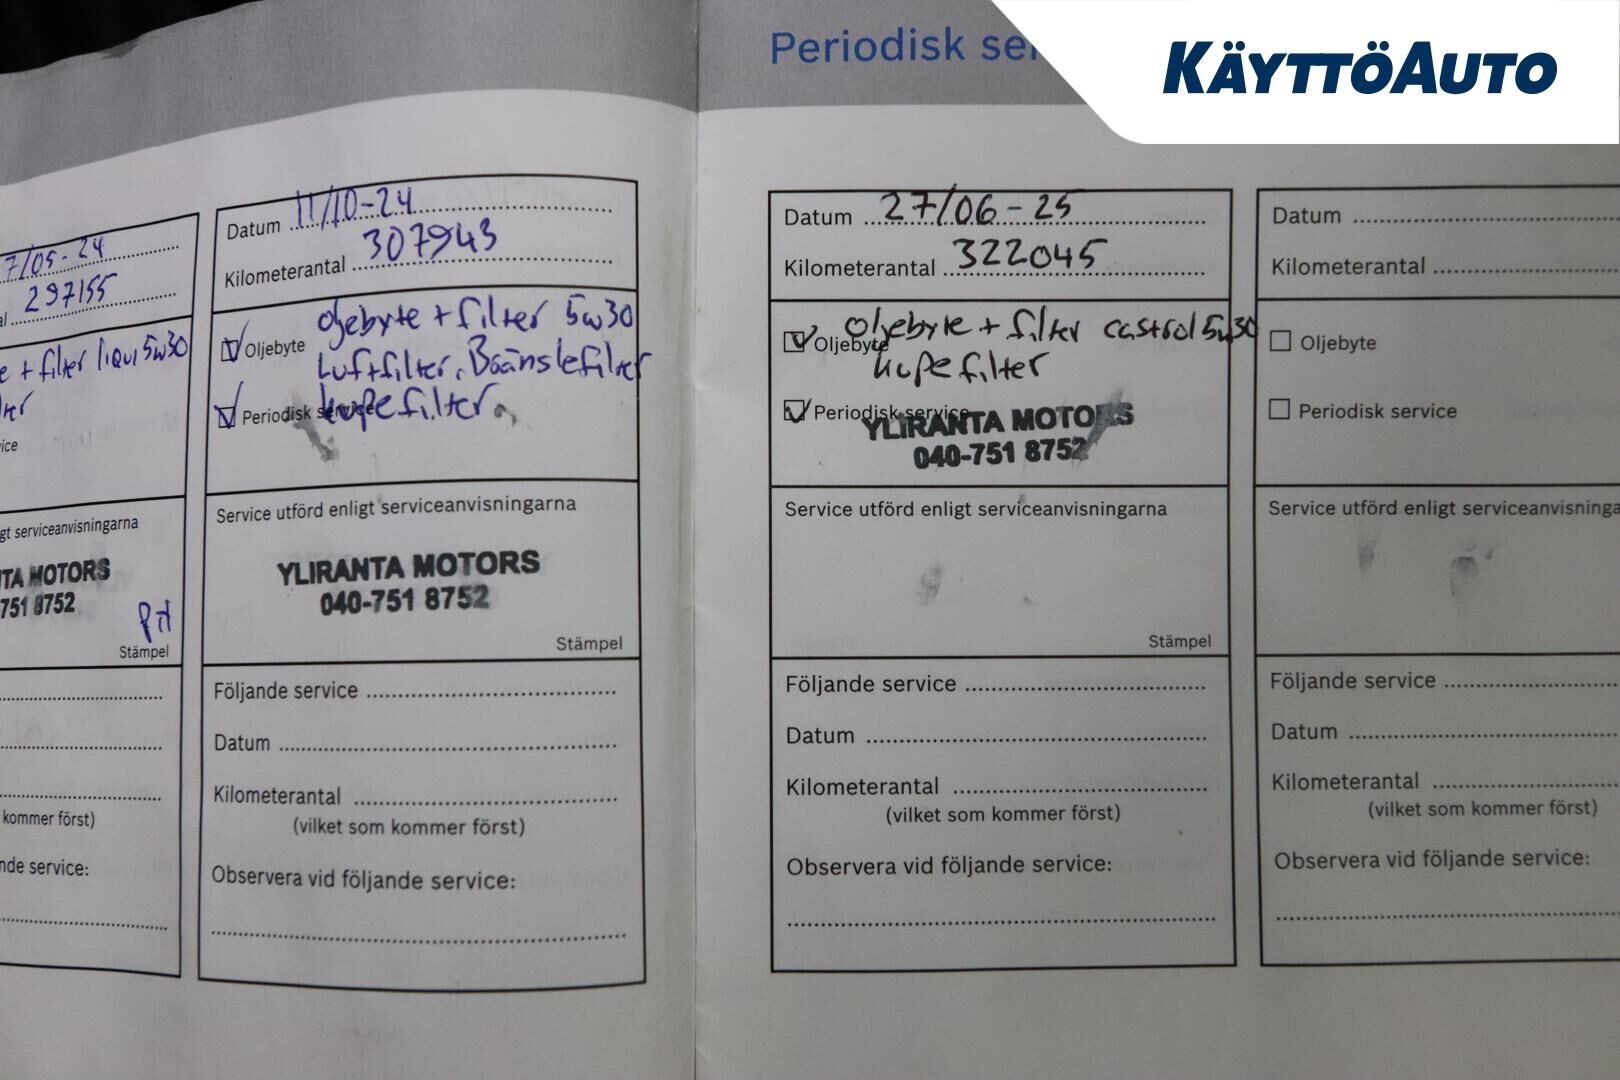 Periodisk
KÄYTTÖAUTO
7/05-24
297155
e + filter liqui 5w30
gt serviceanvisningarna
TA MOTORS
751 8752
Stämpel
kommer först)
nde service:
Datum 11/10-24
Kilometerantal 307943
Oljebyte
oljebyte + filter 5w30
Luftfilter, Bränslefilter
Periodisk service
kupefilter
Service utförd enligt serviceanvisningarna
YLIRANTA MOTORS
040-751 8752
Stämpel
Följande service
Datum
Kilometerantal
(vilket som kommer först)
Observera vid följande service:
Datum 27/06-25
Kilometerantal 322045
Oljebyte
oljebyte + filter castrol 5w30
kupefilter
Periodisk service
YLIRANTA MOTORS
040-751 8752
Service utförd enligt serviceanvisningarna
Stämpel
Följande service
Datum
Kilometerantal
(vilket som kommer först)
Observera vid följande service:
Datum
Kilometerantal
Oljebyte
Periodisk service
Service utförd enligt serviceanvisninga
Följande service
Datum
Kilometerantal
(vilket som kommer först)
Observera vid följande service: